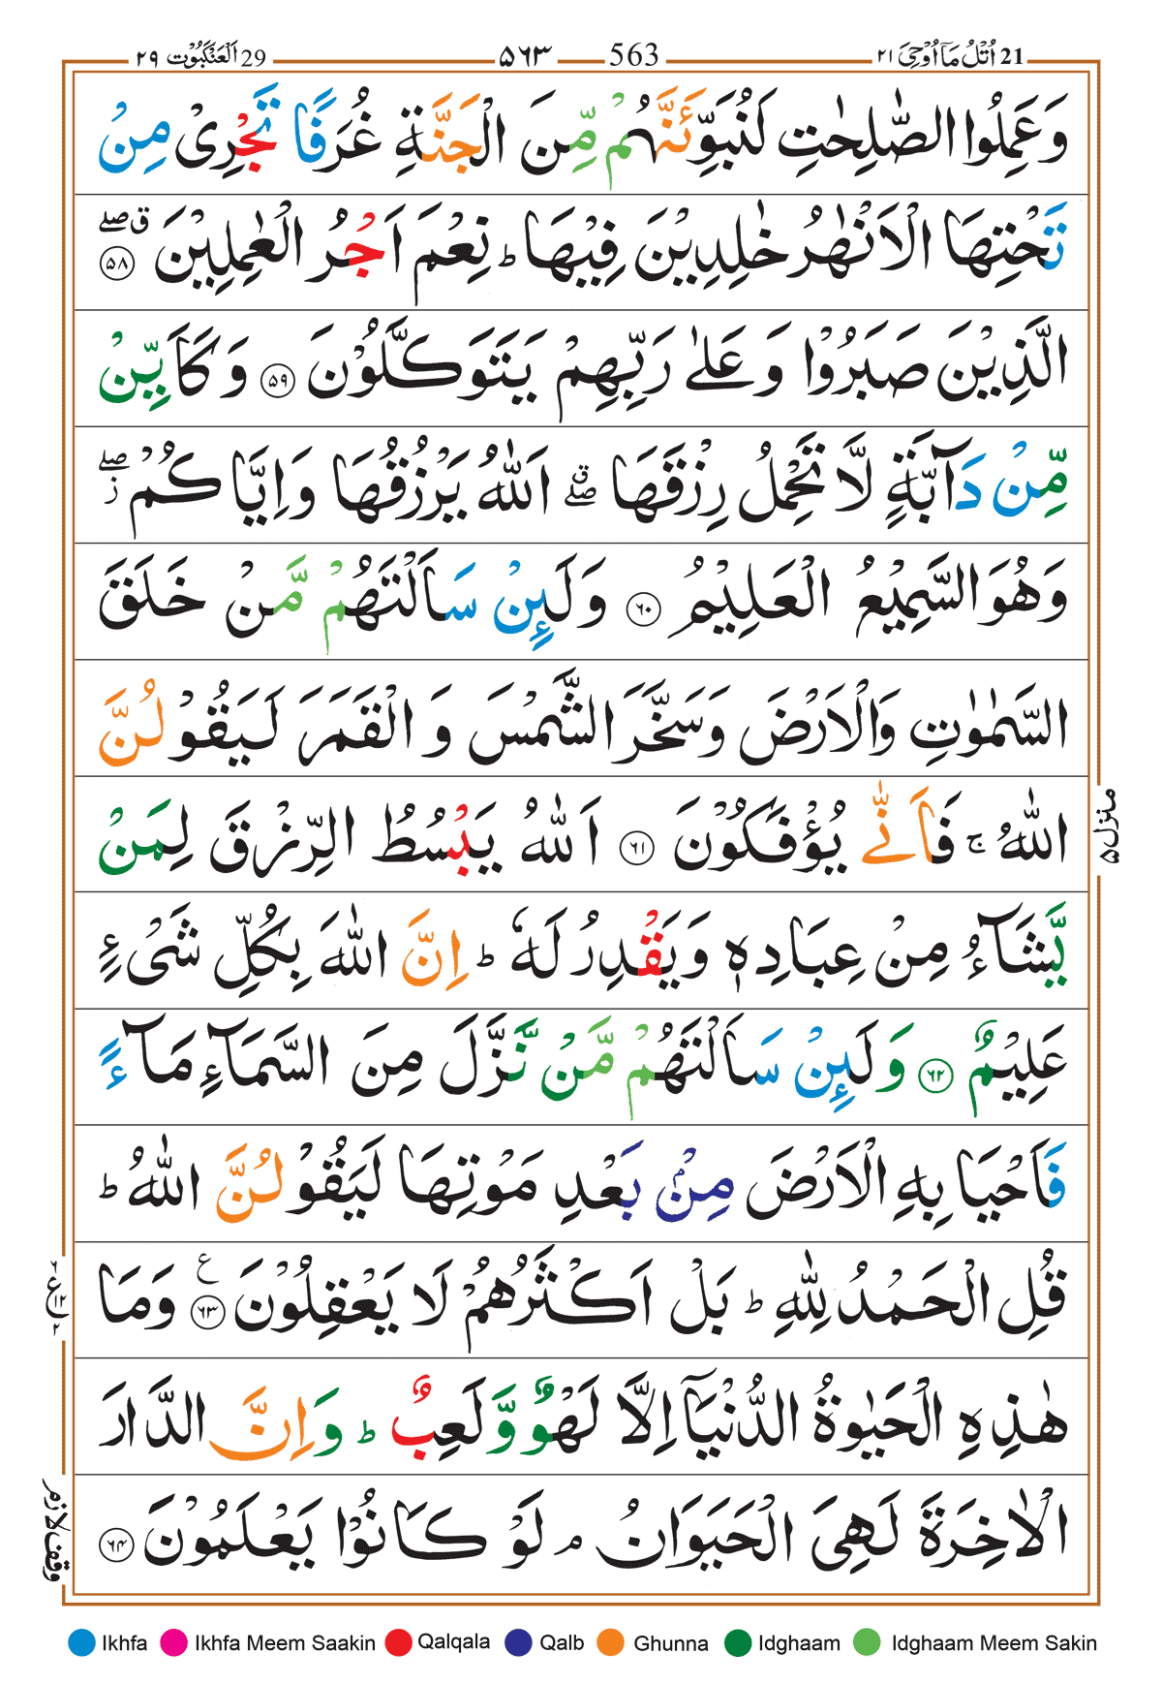 29 اَلْعَنْكَبُوْت ٢٩ ٥٦٣ 563 21 اُتْلُ مَآ اُوْحِيَ ٢١
وَعَمِلُوا الصّٰلِحٰتِ لَنُبَوِّئَنَّهُمْ مِّنَ الْجَنَّةِ غُرَفًا تَجْرِیْ مِنْ
تَحْتِهَا الْاَنْهٰرُ خٰلِدِیْنَ فِیْهَا ؕ نِعْمَ اَجْرُ الْعٰمِلِیْنَ ۗۖ ﴿۵۸﴾
الَّذِیْنَ صَبَرُوْا وَ عَلٰی رَبِّهِمْ یَتَوَكَّلُوْنَ ﴿۵۹﴾ وَ كَاَیِّنْ
مِّنْ دَآبَّةٍ لَّا تَحْمِلُ رِزْقَهَا ۗۖ اَللّٰهُ یَرْزُقُهَا وَ اِیَّاكُمْ ۖؗ
وَ هُوَ السَّمِیْعُ الْعَلِیْمُ ﴿۶۰﴾ وَ لَىِٕنْ سَاَلْتَهُمْ مَّنْ خَلَقَ
السَّمٰوٰتِ وَ الْاَرْضَ وَ سَخَّرَ الشَّمْسَ وَ الْقَمَرَ لَیَقُوْلُنَّ
اللّٰهُ ۚ فَاَنّٰی یُؤْفَكُوْنَ ﴿۶۱﴾ اَللّٰهُ یَبْسُطُ الرِّزْقَ لِمَنْ
یَّشَآءُ مِنْ عِبَادِهٖ وَ یَقْدِرُ لَهٗ ؕ اِنَّ اللّٰهَ بِكُلِّ شَیْءٍ
عَلِیْمٌ ﴿۶۲﴾ وَ لَىِٕنْ سَاَلْتَهُمْ مَّنْ نَّزَّلَ مِنَ السَّمَآءِ مَآءً
فَاَحْیَا بِهِ الْاَرْضَ مِنْۢ بَعْدِ مَوْتِهَا لَیَقُوْلُنَّ اللّٰهُ ؕ
قُلِ الْحَمْدُ لِلّٰهِ ؕ بَلْ اَكْثَرُهُمْ لَا یَعْقِلُوْنَ ﴿۶۳﴾ ع وَ مَا
هٰذِهِ الْحَیٰوةُ الدُّنْیَاۤ اِلَّا لَهْوٌ وَّ لَعِبٌ ؕ وَ اِنَّ الدَّارَ
الْاٰخِرَةَ لَهِیَ الْحَیَوَانُ ۘ لَوْ كَانُوْا یَعْلَمُوْنَ ﴿۶۴﴾
منزل ۵
وقف لازم
Ikhfa Ikhfa Meem Saakin Qalqala Qalb Ghunna Idghaam Idghaam Meem Sakin